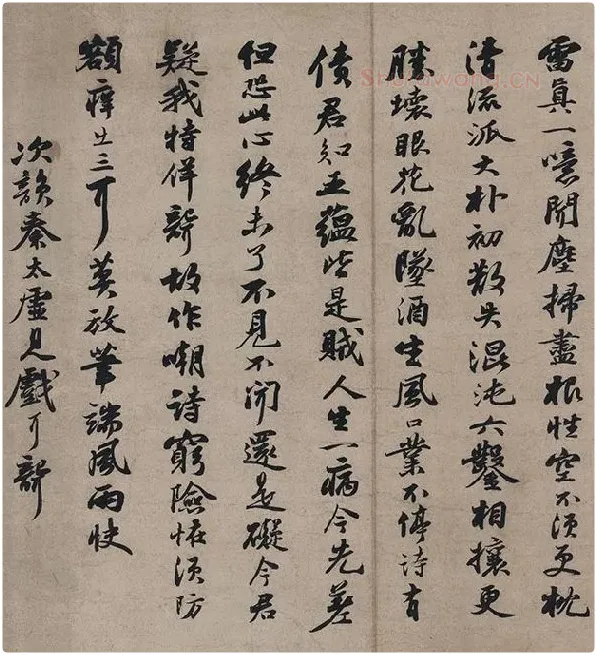 雷真一噫聞塵掃盡根性空不須更枕
清流派大朴初散失混沌六鑿相攘更
勝壞眼花亂墜酒生風口業不停詩有
債君知五蘊皆是賊人生一病今先差
但恐此心終未了不見不聞還是礙今君
疑我特佯聾故作嘲詩窮險怪須防
額痒出三耳莫放筆端風雨快
次韻秦太虛見戲耳聾